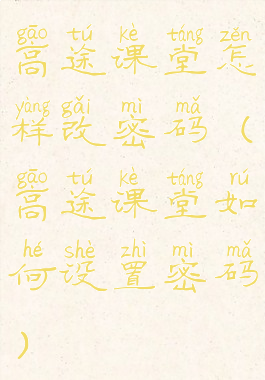 gāo tú kè táng zěn
高途课堂怎
yàng gǎi mì mǎ
样改密码（
gāo tú kè táng rú
高途课堂如
hé shè zhì mì mǎ
何设置密码
）